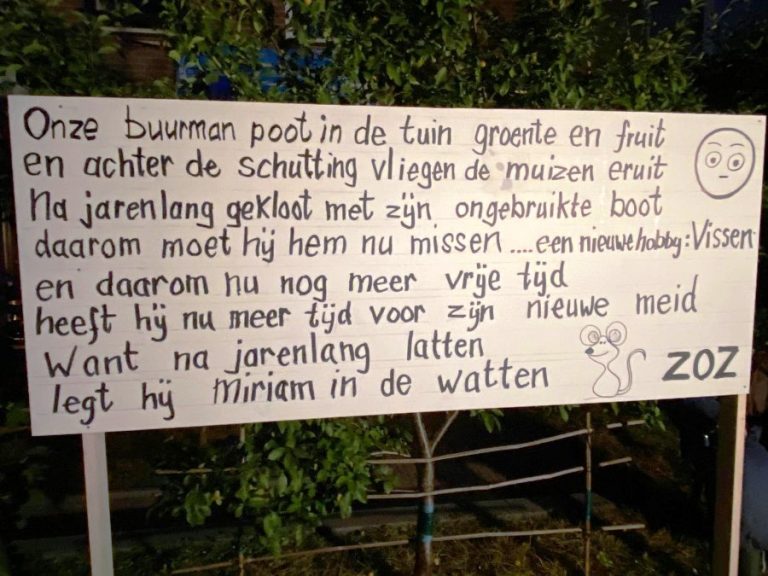 Onze buurman poot in de tuin groente en fruit
en achter de schutting vliegen de muizen eruit
Na jarenlang gekloot met zijn ongebruikte boot
daarom moet hij hem nu missen .... een nieuwe hobby: Vissen
en daarom nu nog meer vrije tijd
heeft hij nu meer tijd voor zijn nieuwe meid
Want na jarenlang latten
legt hij Miriam in de watten
ZOZ